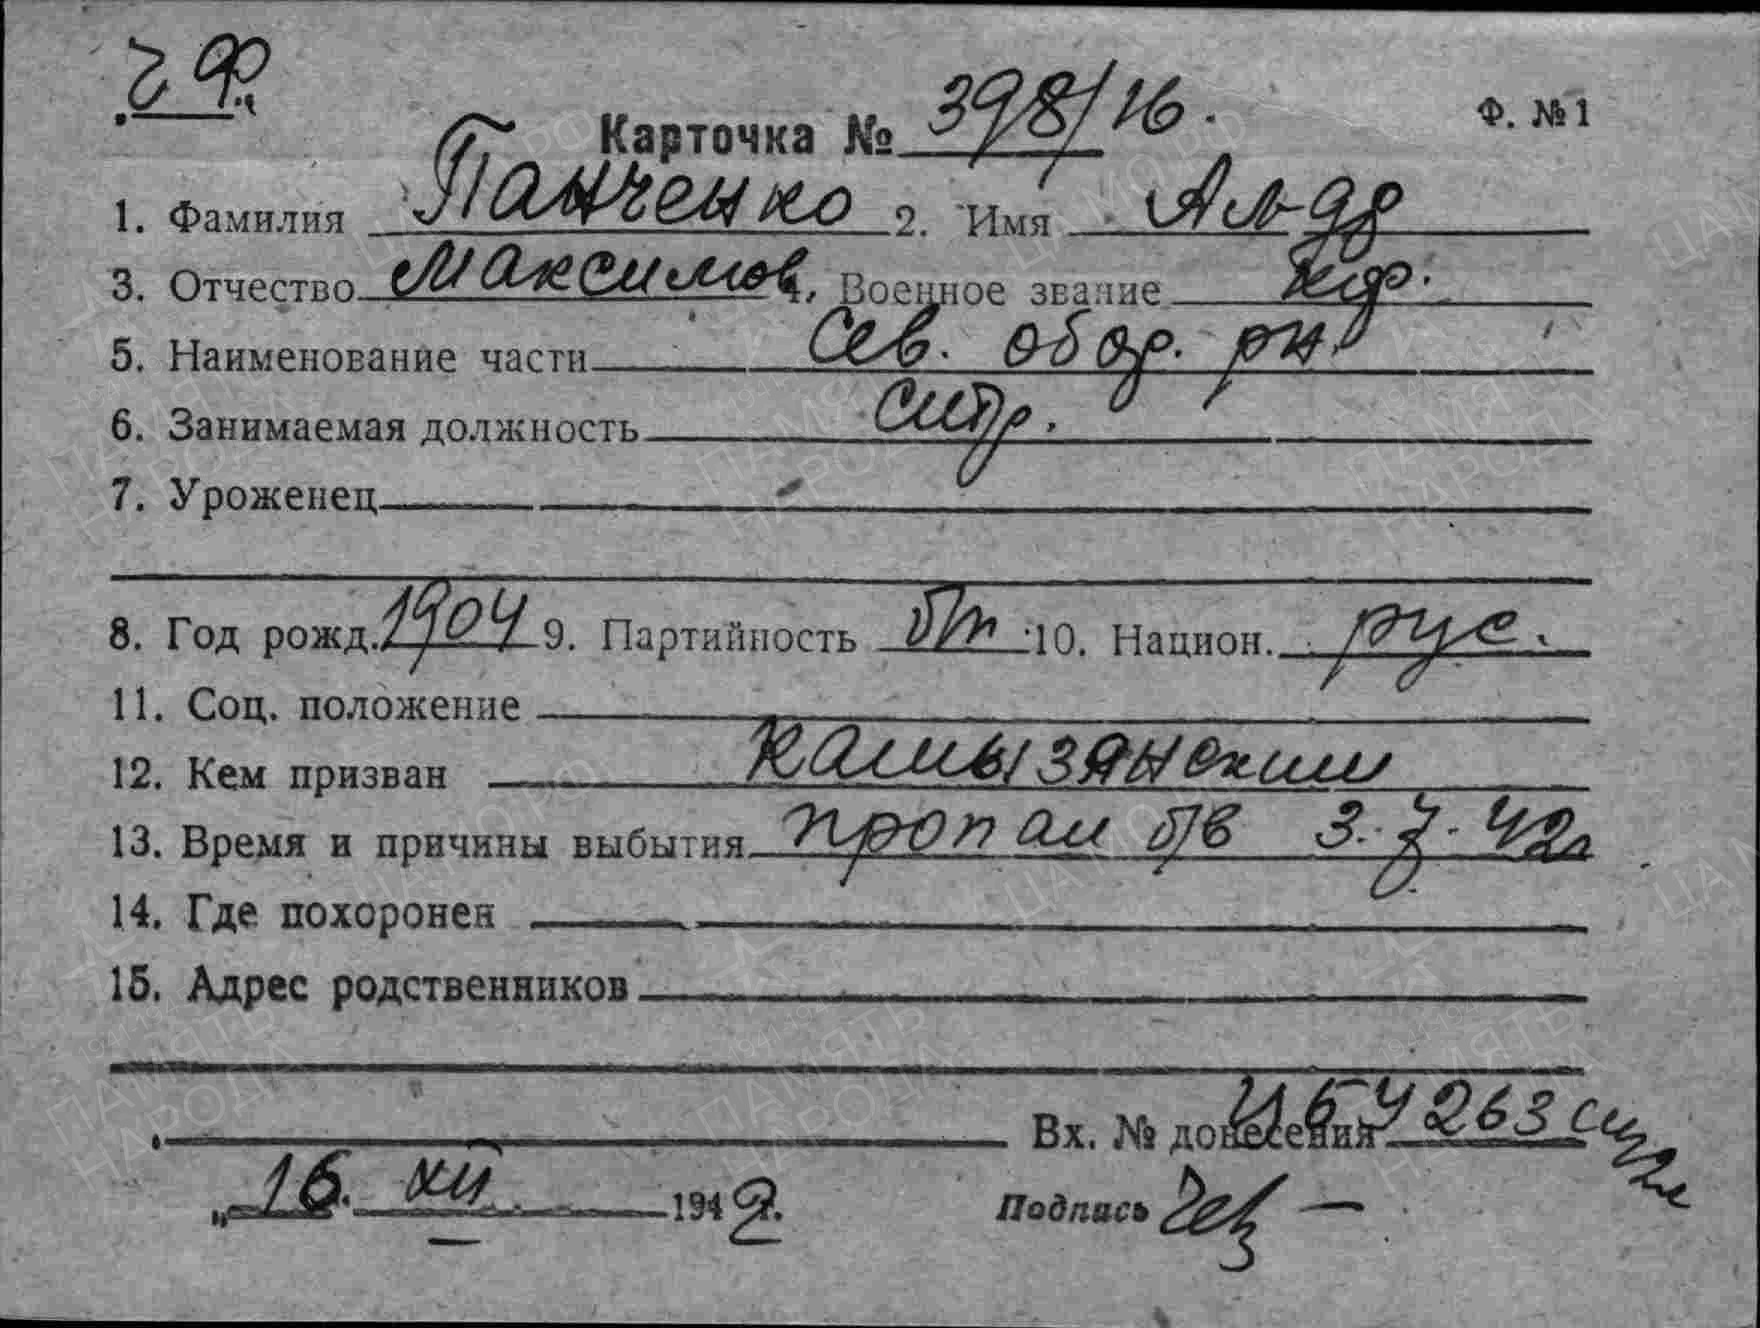 ЧФ.
Карточка № 398/16. Ф. № 1
1. Фамилия Панченко 2. Имя Ал-др
3. Отчество Максимов. 4. Военное звание кф.
5. Наименование части Сев. обор. рн.
6. Занимаемая должность
7. Уроженец
8. Год рожд. 1904 9. Партийность б/п 10. Национ. рус.
11. Соц. положение
12. Кем призван Камызянским
13. Время и причины выбытия пропал б/в 3.7.42г
14. Где похоронен
15. Адрес родственников
Вх. № донесения 263
„16. XII 1942г.
Подпись